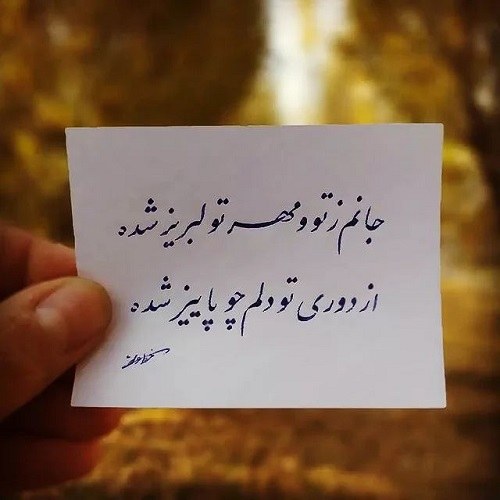 جانم ز تو و مهر تو لبریز شده
از دوری تو دلم چو پاییز شده